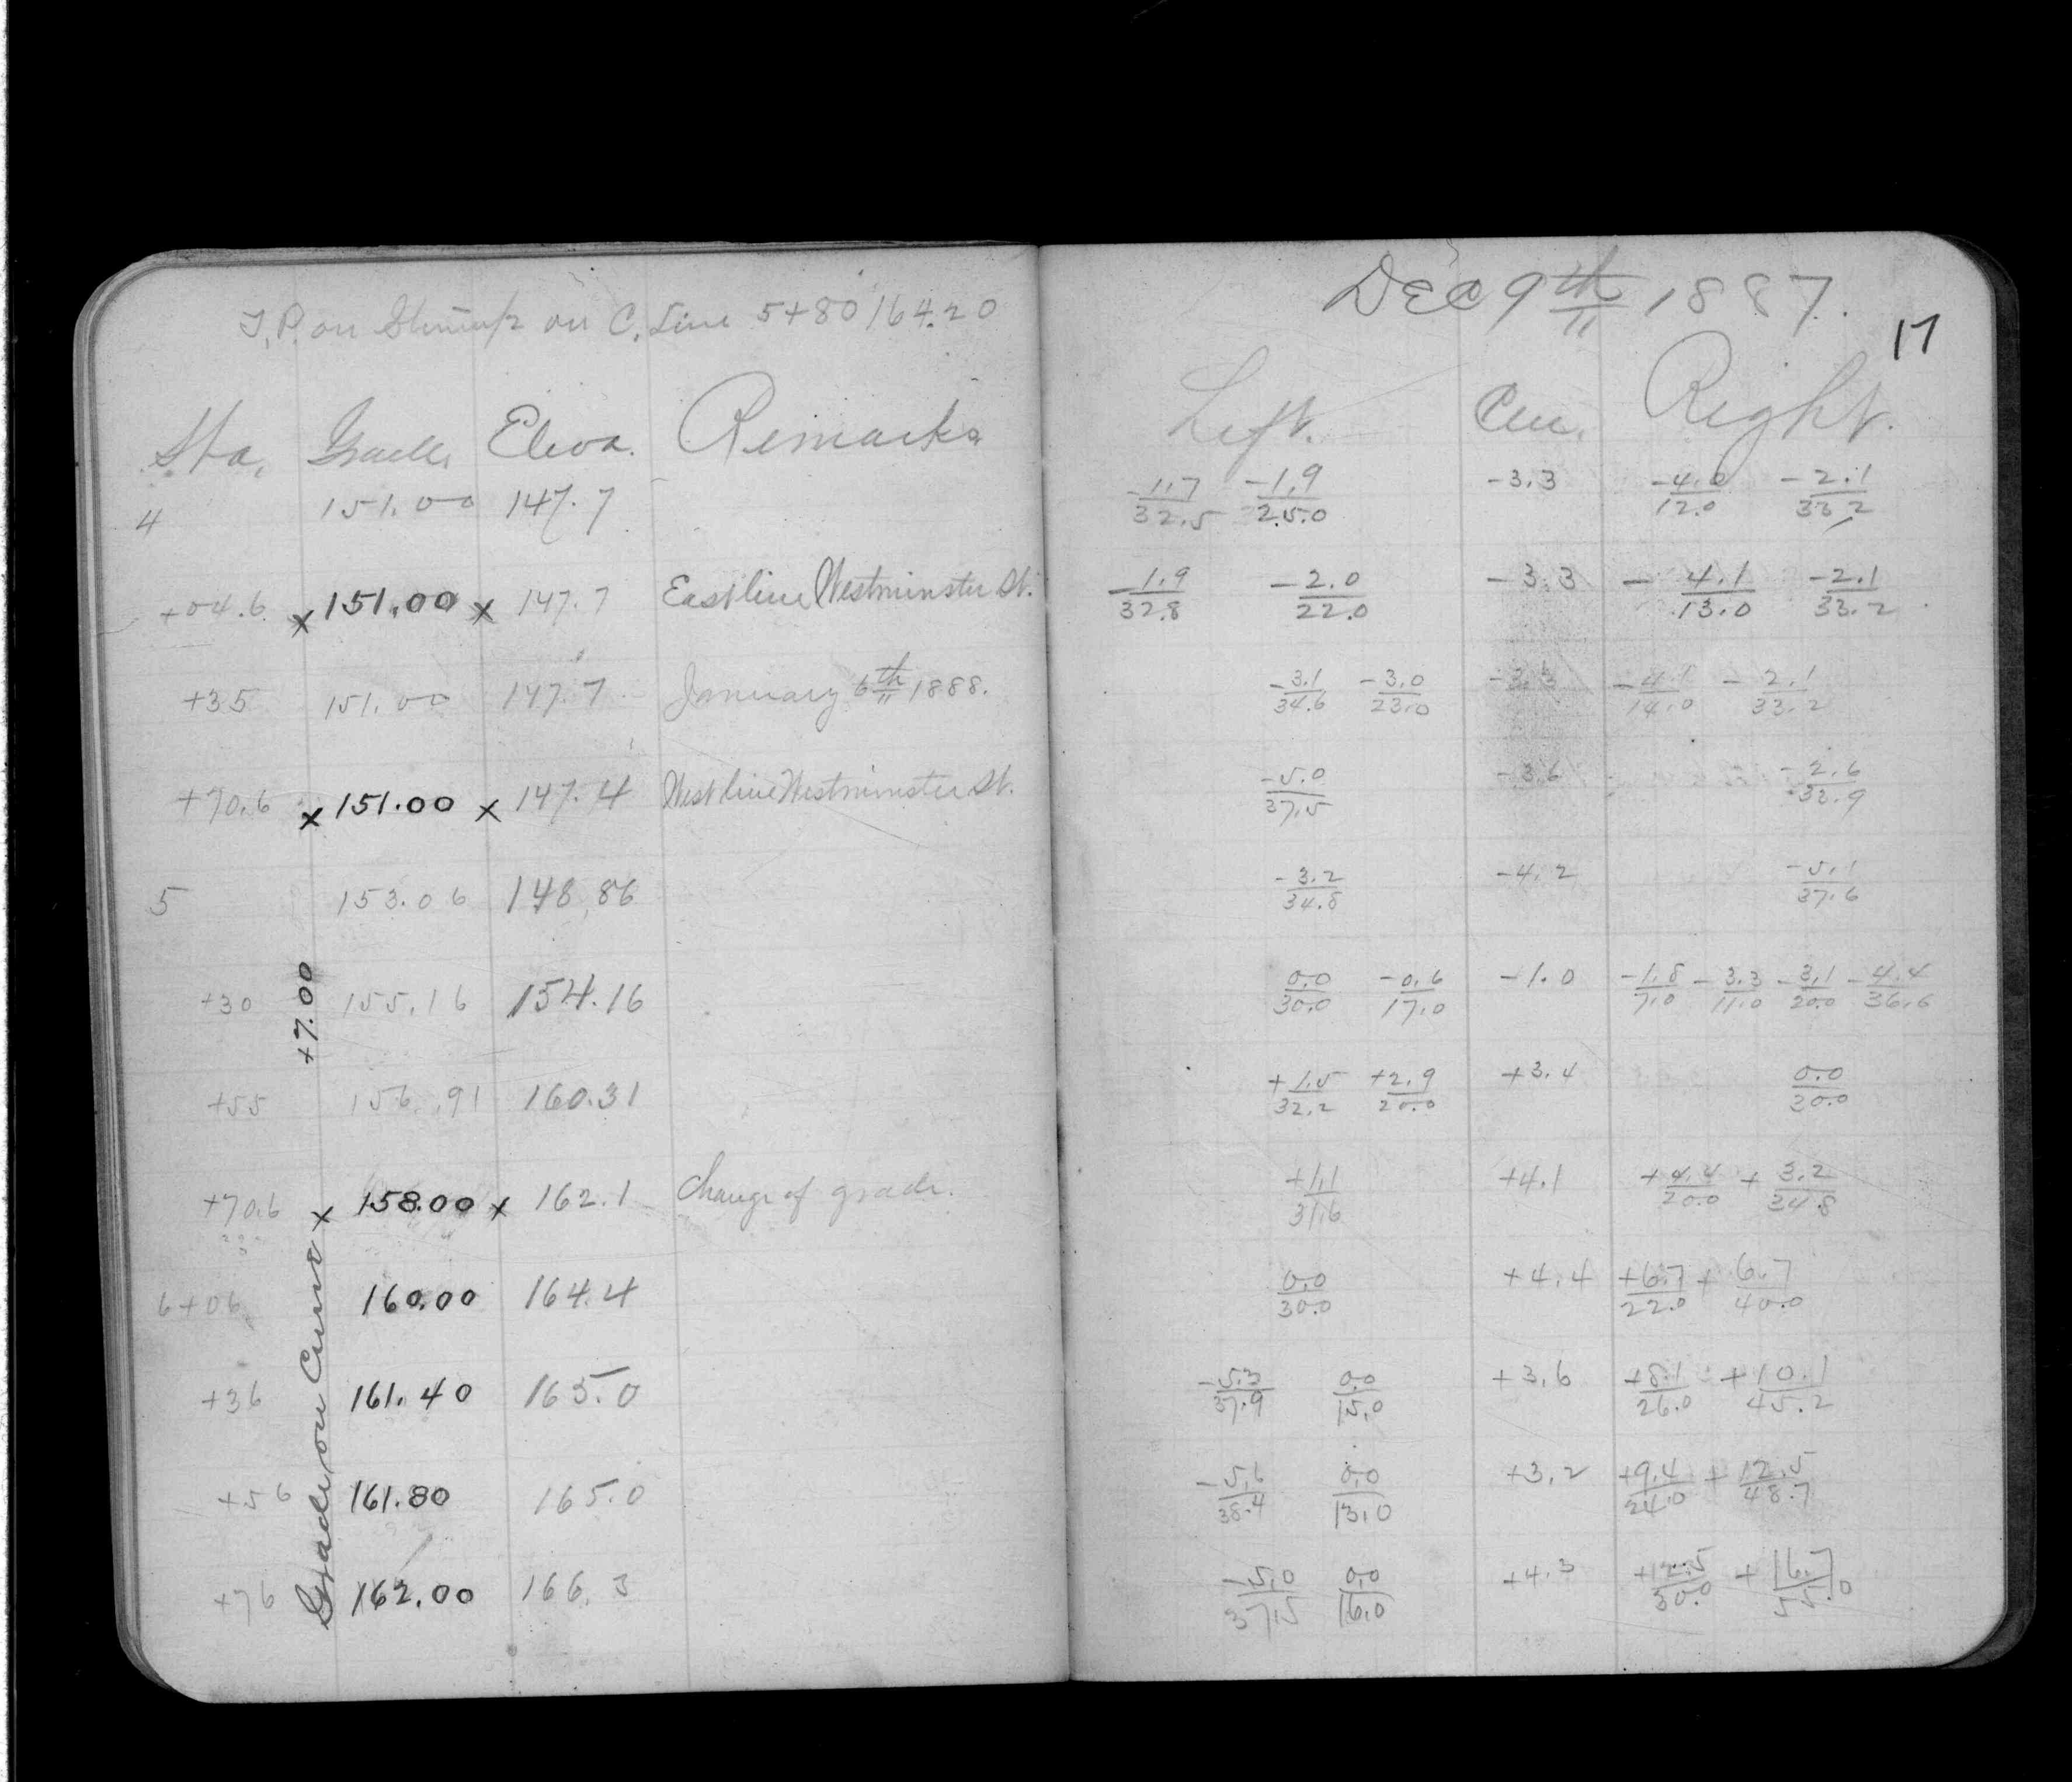 T.P. on Stump on C. Line 5+80 164.20
Sta. Grade Eleva. Remarks
4 151.00 147.7
+04.6 x 151.00 x 147.7 East line Westminster St.
+35 151.00 147.7 January 6th 1888.
+70.6 x 151.00 x 147.4 West line Westminster St.
5 153.06 148.86
+30 155.16 154.16
+55 156.91 160.31
+70.6 x 158.00 x 162.1 Change of grade.
6+06 160.00 164.4
+36 161.40 165.0
+56 161.80 165.0
+76 162.00 166.3
Grade on Curve +7.00
Dec 9th 1887.
17
Left. Cen. Right.
-1.7/32.5 -1.9/25.0 -3.3 -4.0/12.0 -2.1/33.2
-1.9/32.8 -2.0/22.0 -3.3 -4.1/13.0 -2.1/33.2
-3.1/34.6 -3.0/23.0 -3.3 -4.1/14.0 -2.1/33.2
-5.0/37.5 -3.6 -2.6/33.9
-3.2/34.8 -4.2 -5.1/37.6
0.0/30.0 -0.6/17.0 -1.0 -1.8/7.0 -3.3/11.0 -3.1/20.0 -4.4/36.6
+1.5/32.2 +2.9/20.0 +3.4 0.0/30.0
+1.1/31.6 +4.1 +4.4/20.0 +3.2/34.8
0.0/30.0 +4.4 +6.7/22.0 +6.7/40.0
-5.3/37.9 0.0/15.0 +3.6 +8.1/26.0 +10.1/45.2
-5.6/38.4 0.0/13.0 +3.2 +9.4/24.0 +12.5/48.7
-5.0/37.5 0.0/16.0 +4.3 +12.5/30.0 +16.7/55.0